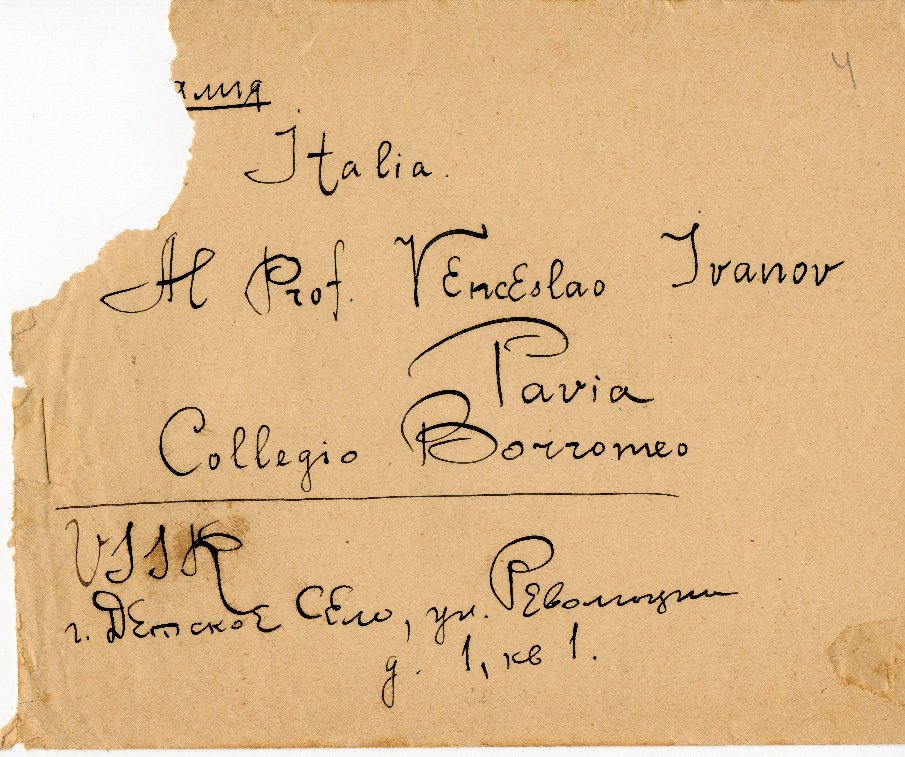 алия
Italia.
4
Al Prof. Venceslao Ivanov
Pavia
Collegio Borromeo
USSR
г. Детское Село, ул. Революции
д. 1, кв 1.